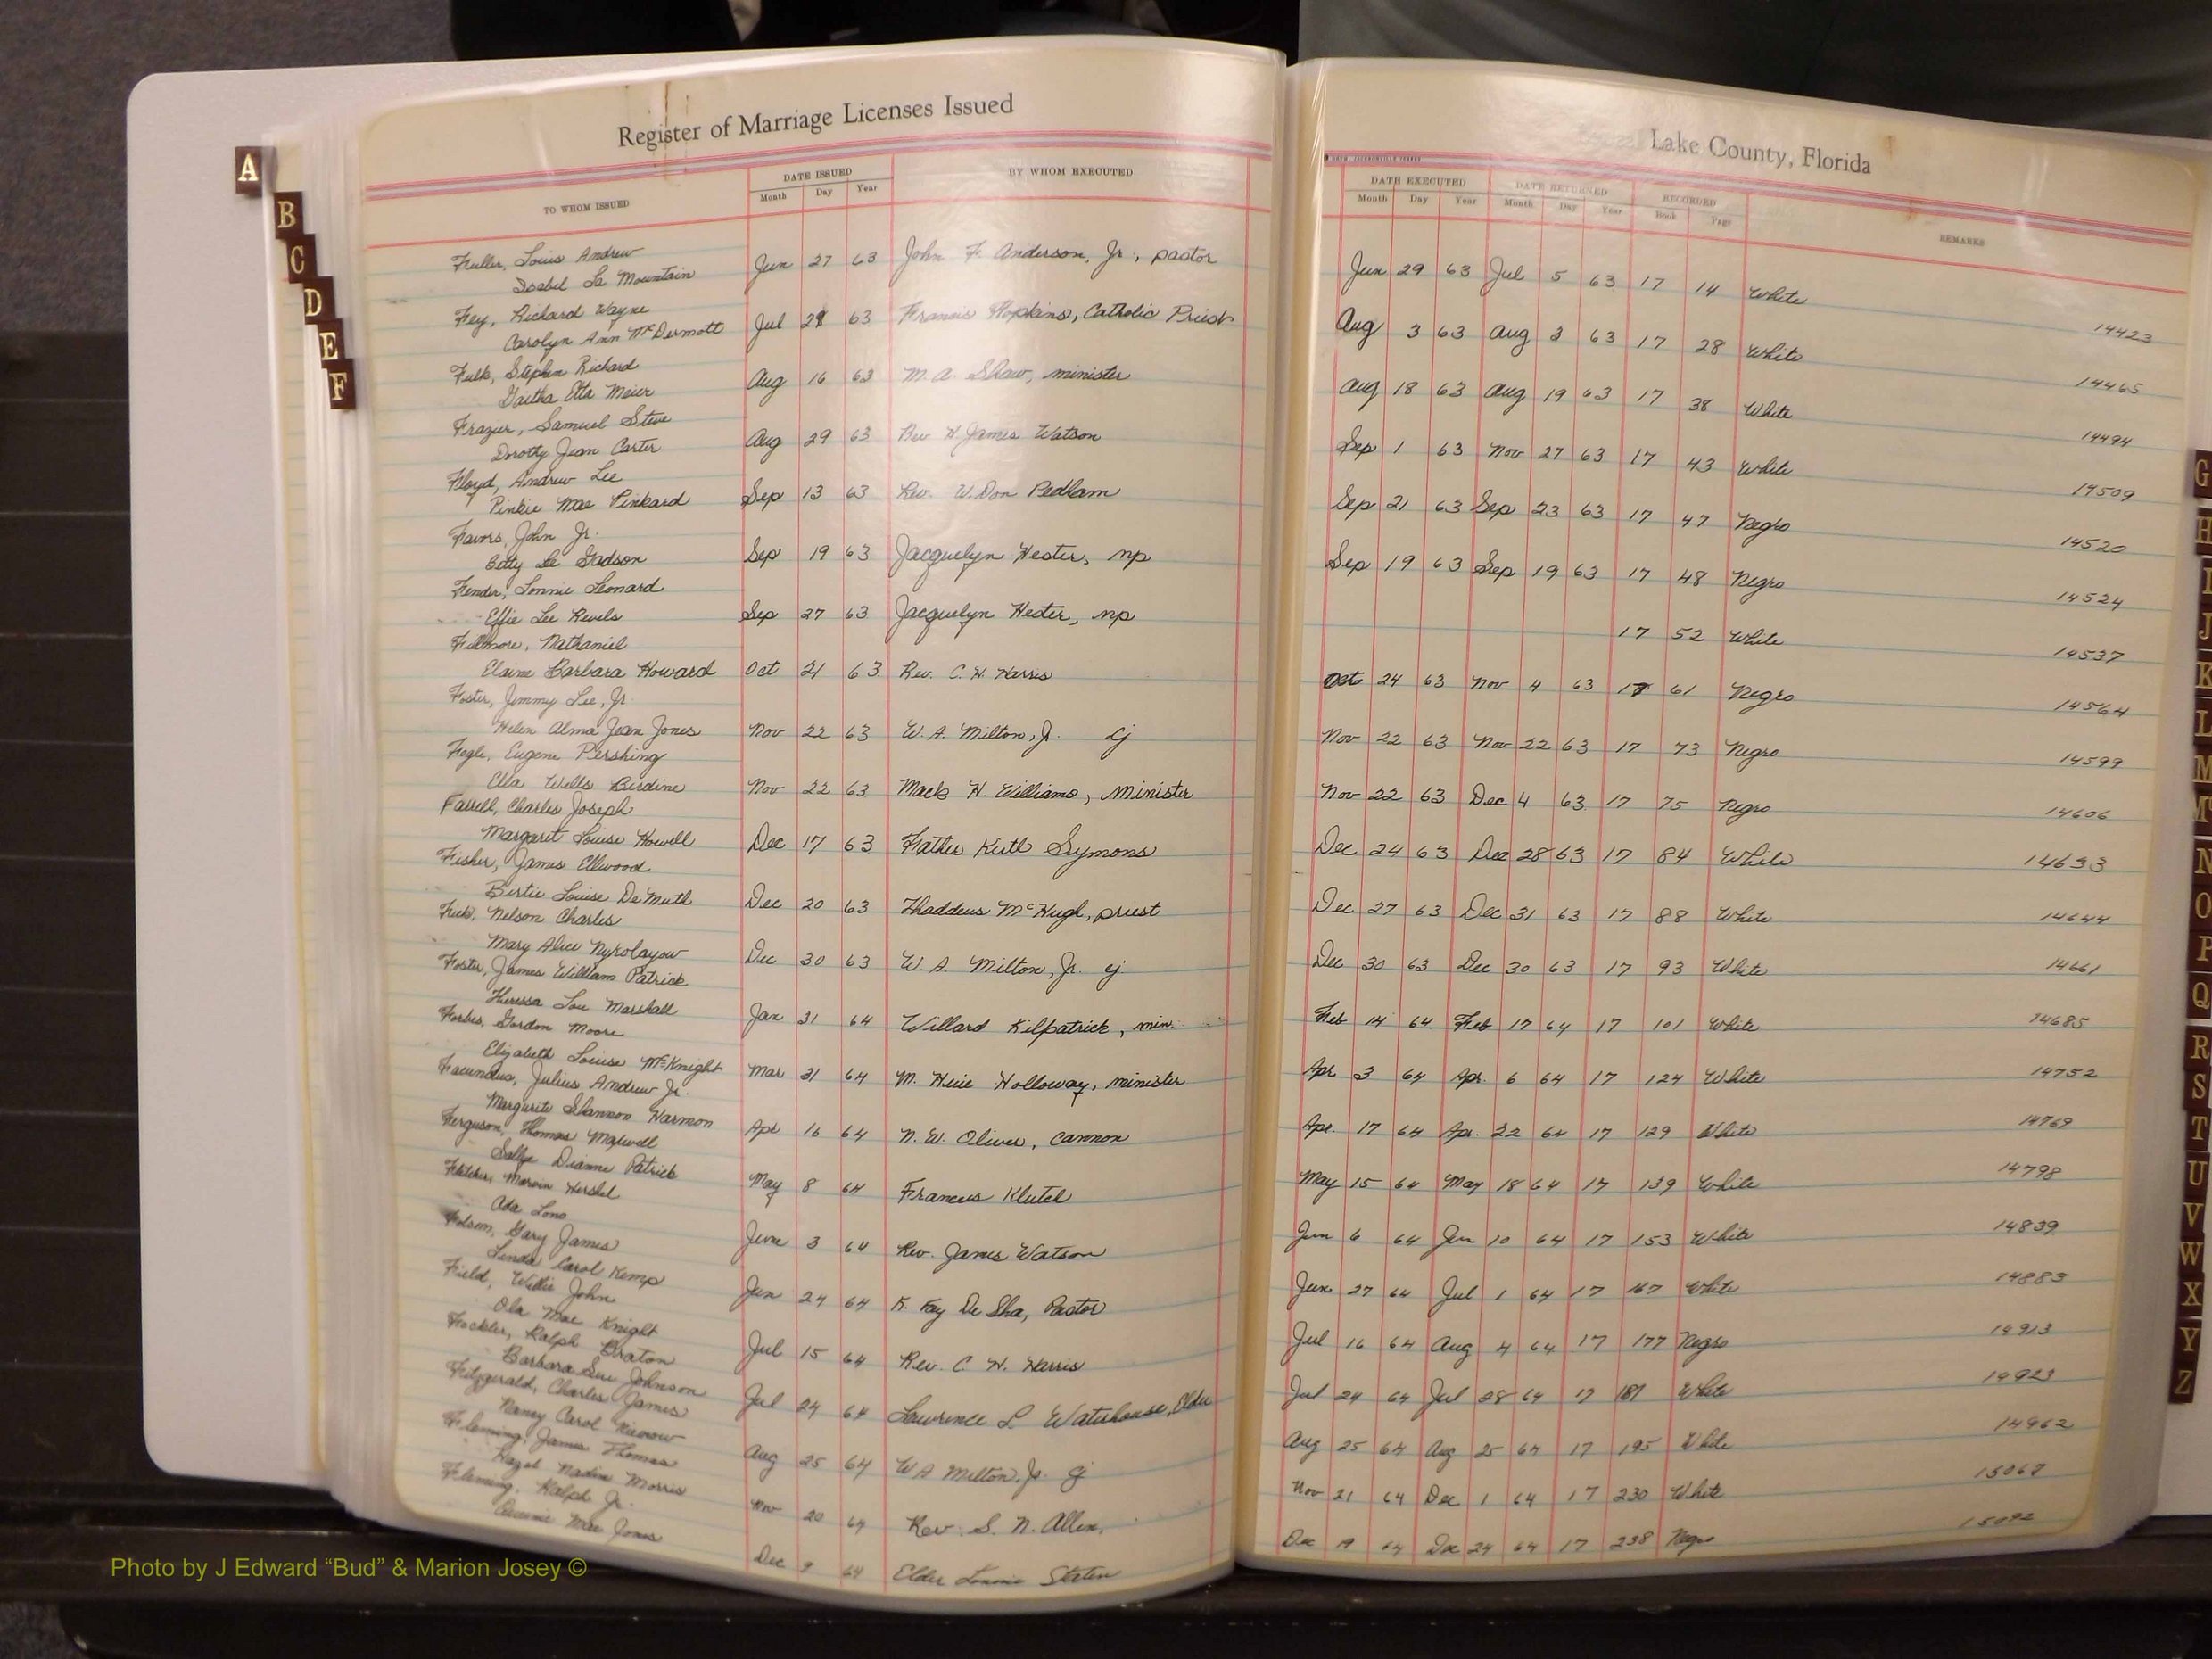 Register of Marriage Licenses Issued
Lake County, Florida
TO WHOM ISSUED
DATE ISSUED
Month Day Year
BY WHOM EXECUTED
DATE EXECUTED
Month Day Year
DATE RETURNED
Month Day Year
RECORDED
Book Page
REMARKS
Fuller, Louis Andrew
Isabel La Mountain
Jun 27 63 John F. Anderson, Jr, pastor Jun 29 63 Jul 5 63 17 14 White 14423
Fey, Richard Wayne
Carolyn Ann McDermott
Jul 29 63 Francis Hopkins, Catholic Priest Aug 3 63 Aug 3 63 17 28 White 14465
Fulk, Stephen Richard
Etta Meier
Aug 16 63 M. A. Shaw, minister Aug 18 63 Aug 19 63 17 38 White 14494
Frazur, Samuel Steve
Dorothy Jean Carter
Aug 29 63 Rev H. James Watson Sep 1 63 Nov 27 63 17 43 White 14509
Floyd, Andrew Lee
Pinkie Mae Pinkard
Sep 13 63 Rev. W. Don Pedlam Sep 21 63 Sep 23 63 17 47 Negro 14520
Favors, John Jr.
Betty Le Gadson
Sep 19 63 Jacquelyn Hester, np Sep 19 63 Sep 19 63 17 48 Negro 14524
Fender, Lonnie Leonard
Effie Lee Revels
Sep 27 63 Jacquelyn Hester, np 17 52 White 14537
Fillmore, Nathaniel
Elaine Barbara Howard
Oct 21 63 Rev. C. H. Harris Oct 24 63 Nov 4 63 17 61 Negro 14564
Foster, Jimmy Lee, Jr.
Helen Alma Jean Jones
Nov 22 63 W. A. Milton, Jr. cj Nov 22 63 Nov 22 63 17 73 Negro 14599
Fogle, Eugene Pershing
Ella Wells Birdine
Nov 22 63 Mack H. Williams, minister Nov 22 63 Dec 4 63 17 75 Negro 14606
Farrell, Charles Joseph
Margaret Louise Howell
Dec 17 63 Father Symons Dec 24 63 Dec 28 63 17 84 White 14633
Fisher, James Ellwood
Bertie Louise DeMuth
Dec 20 63 Thaddeus McHugh, priest Dec 27 63 Dec 31 63 17 88 White 14644
Fick, Nelson Charles
Mary Alice Nykolayow
Dec 30 63 W. A. Milton, Jr. cj Dec 30 63 Dec 30 63 17 93 White 14661
Foster, James William Patrick
Theressa Lou Marshall
Jan 31 64 Willard Kilpatrick, min. Feb 14 64 Feb 17 64 17 101 White 14685
Forbes, Gordon Moore
Elizabeth Louise McKnight
Mar 31 64 M. Huie Holloway, minister Apr 3 64 Apr. 6 64 17 124 White 14752
Facundus, Julius Andrew Jr.
Margurite Shannon Harmon
Apr 16 64 N. W. Oliver, cannon Apr. 17 64 Apr. 22 64 17 129 White 14769
Ferguson, Thomas Maxwell
Sallye Dianne Patrick
May 8 64 Francis Klutel May 15 64 May 18 64 17 139 White 14798
Fletcher, Marvin Hershel
Ada Long
June 3 64 Rev. James Watson Jun 6 64 Jun 10 64 17 153 White 14839
Folsom, Gary James
Linda Carol Kemp
Jun 24 64 K. Fay De Sha, Pastor Jun 27 64 Jul 1 64 17 167 White 14883
Field, Willie John
Ola Mae Knight
Jul 15 64 Rev. C. H. Harris Jul 16 64 Aug 4 64 17 177 Negro 14913
Fockler, Ralph Braton
Barbara Sue Johnson
Jul 24 64 Lawrence L Waterhouse, Elder Jul 24 64 Jul 28 64 17 181 White 14923
Fitzgerald, Charles James
Nancy Carol
Aug 25 64 W A Milton, Jr. cj Aug 25 64 Aug 25 64 17 195 White 14962
Fleming, James Thomas
Hazel Nadine Morris
Nov 20 64 Rev. S. N. Allen, Nov 21 64 Dec 1 64 17 230 White 15067
Fleming, Ralph Jr.
Mae Jones
Dec 9 64 Elder Lonnie Staten Dec 19 64 Dec 24 64 17 238 Negro 15092
A
B
C
D
E
F
G
H
I
J
K
L
M
Mc
N
O
P
Q
R
S
T
U
V
W
X
Y
Z
Photo by J Edward “Bud” & Marion Josey ©